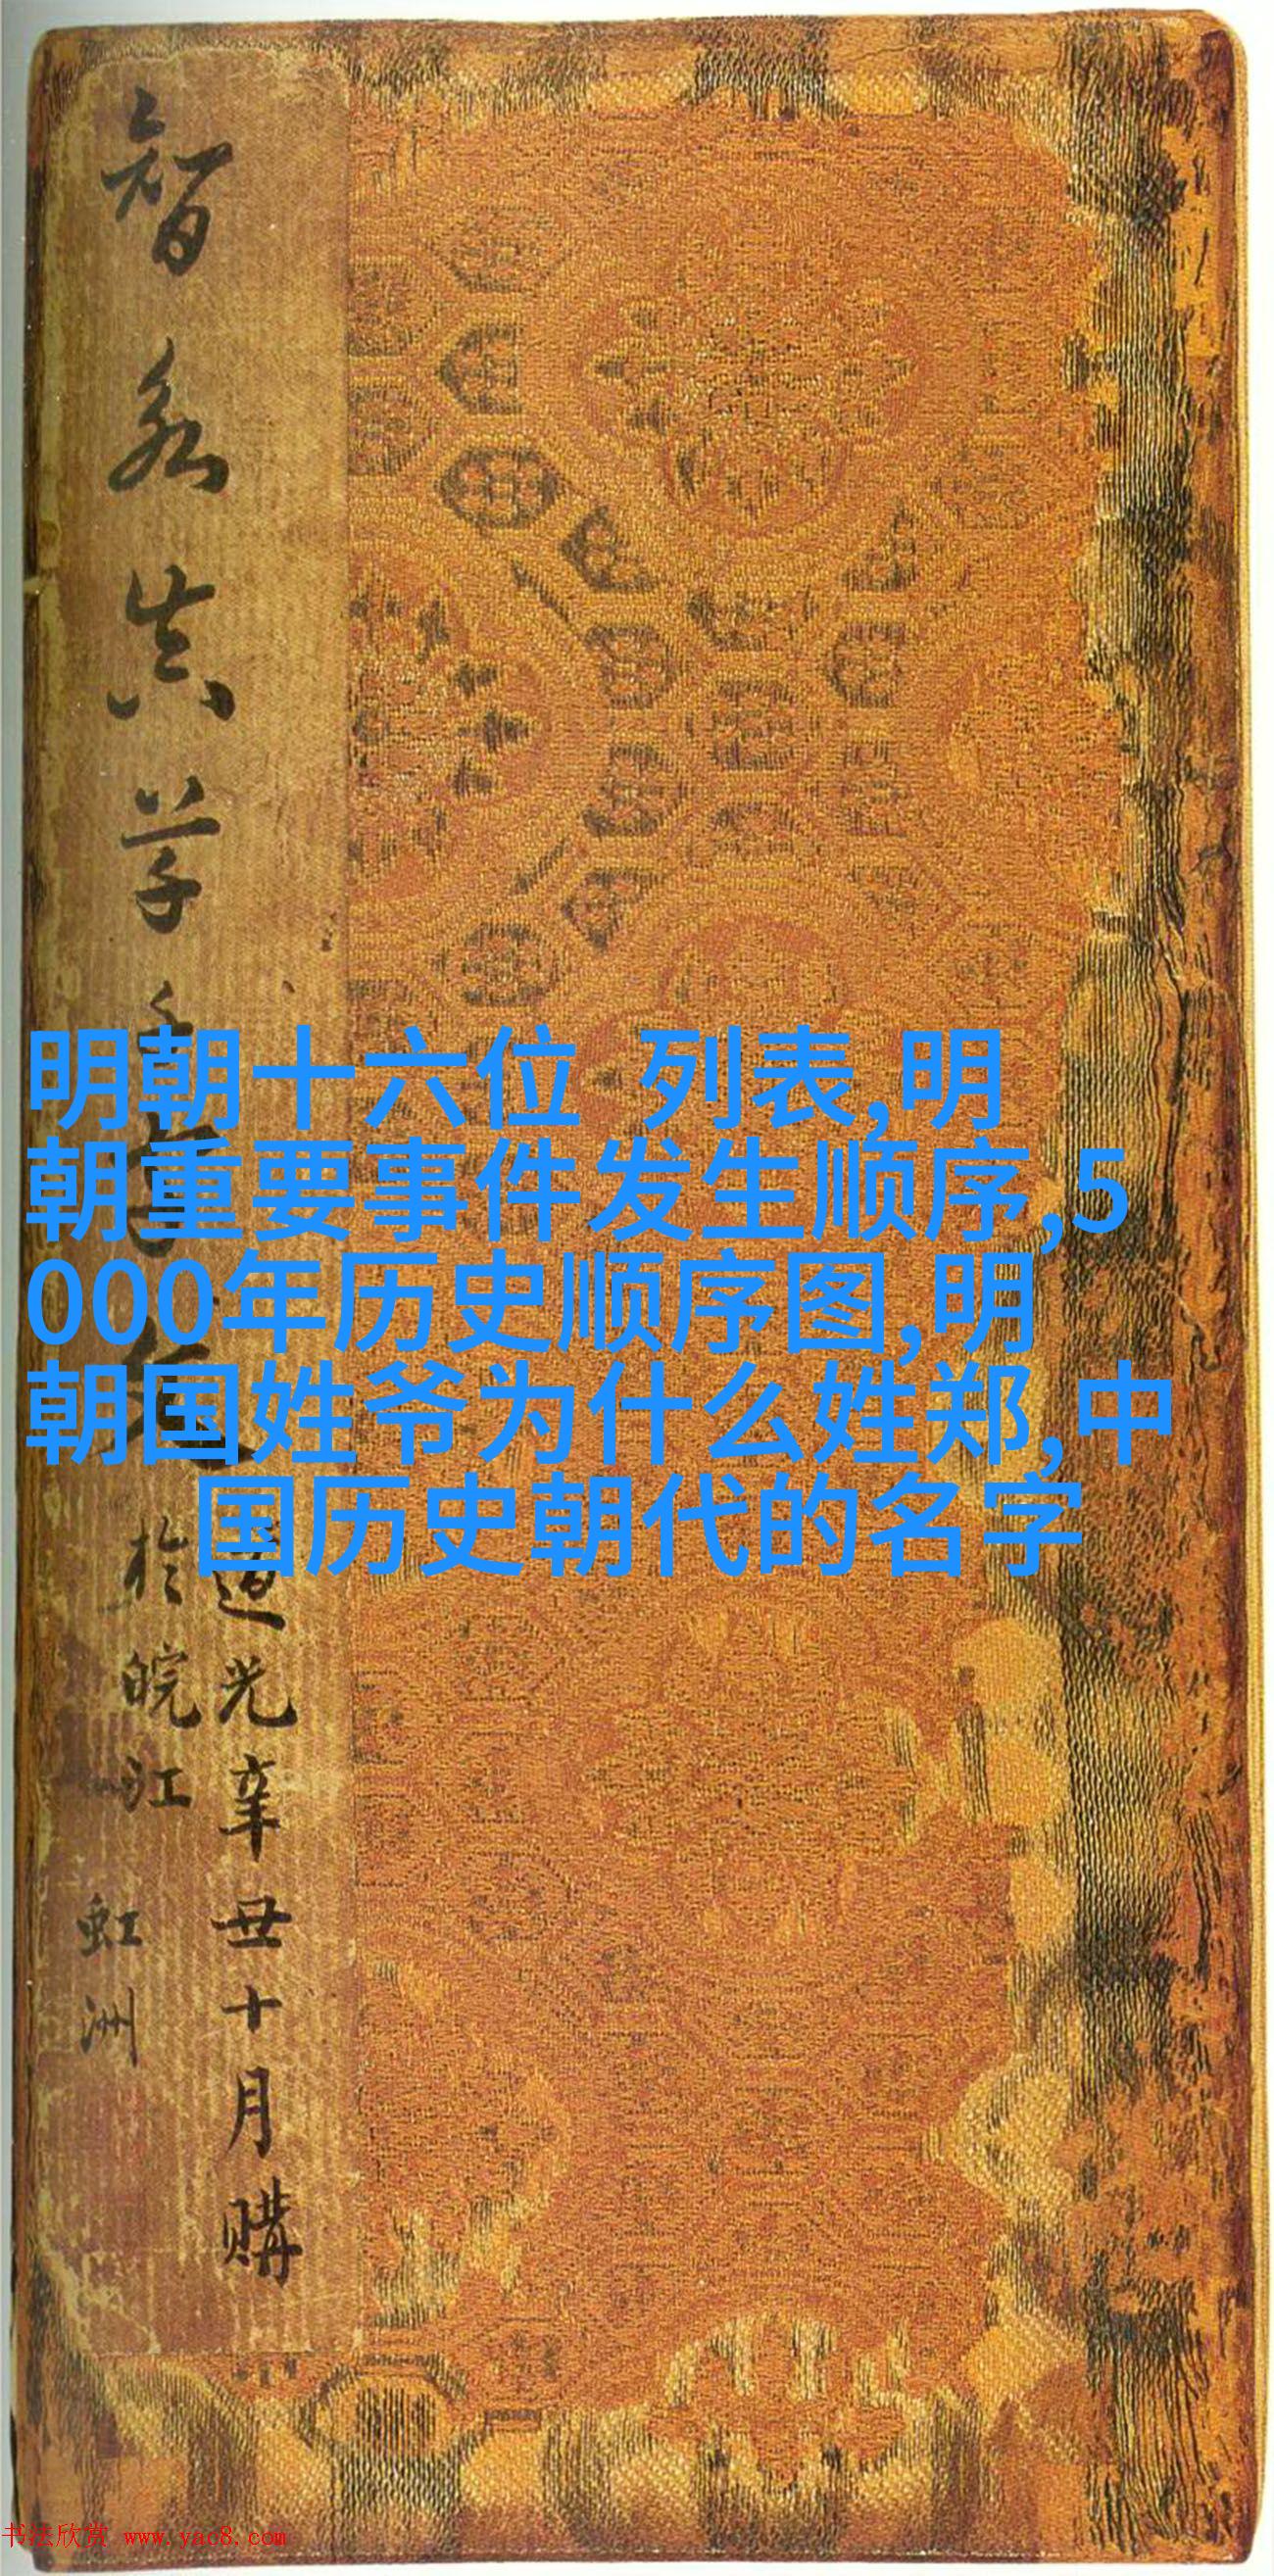 智永真草千字文
道光辛丑十月購
於皖江
虹洲
明朝十六位 列表,明
朝重要事件发生顺序,5
000年历史顺序图,明
朝国姓爷为什么姓郑,中
国历史朝代的名字
书法欣赏 www.yac8.com